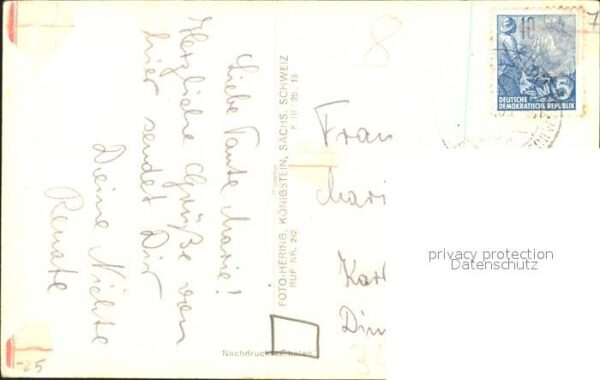 Liebe Tante Marie!
Herzliche Grüße von
hier sendet Dir
Deine Nichte
Renate
FOTO-HERING, KÖNIGSTEIN, SÄCHS. SCHWEIZ
RUF NR. 242
Nachdruck verboten
8
10
DEUTSCHE
DEMOKRATISCHE REPUBLIK
7
Frau
Mari
Karl
privacy protection
Datenschutz
-25